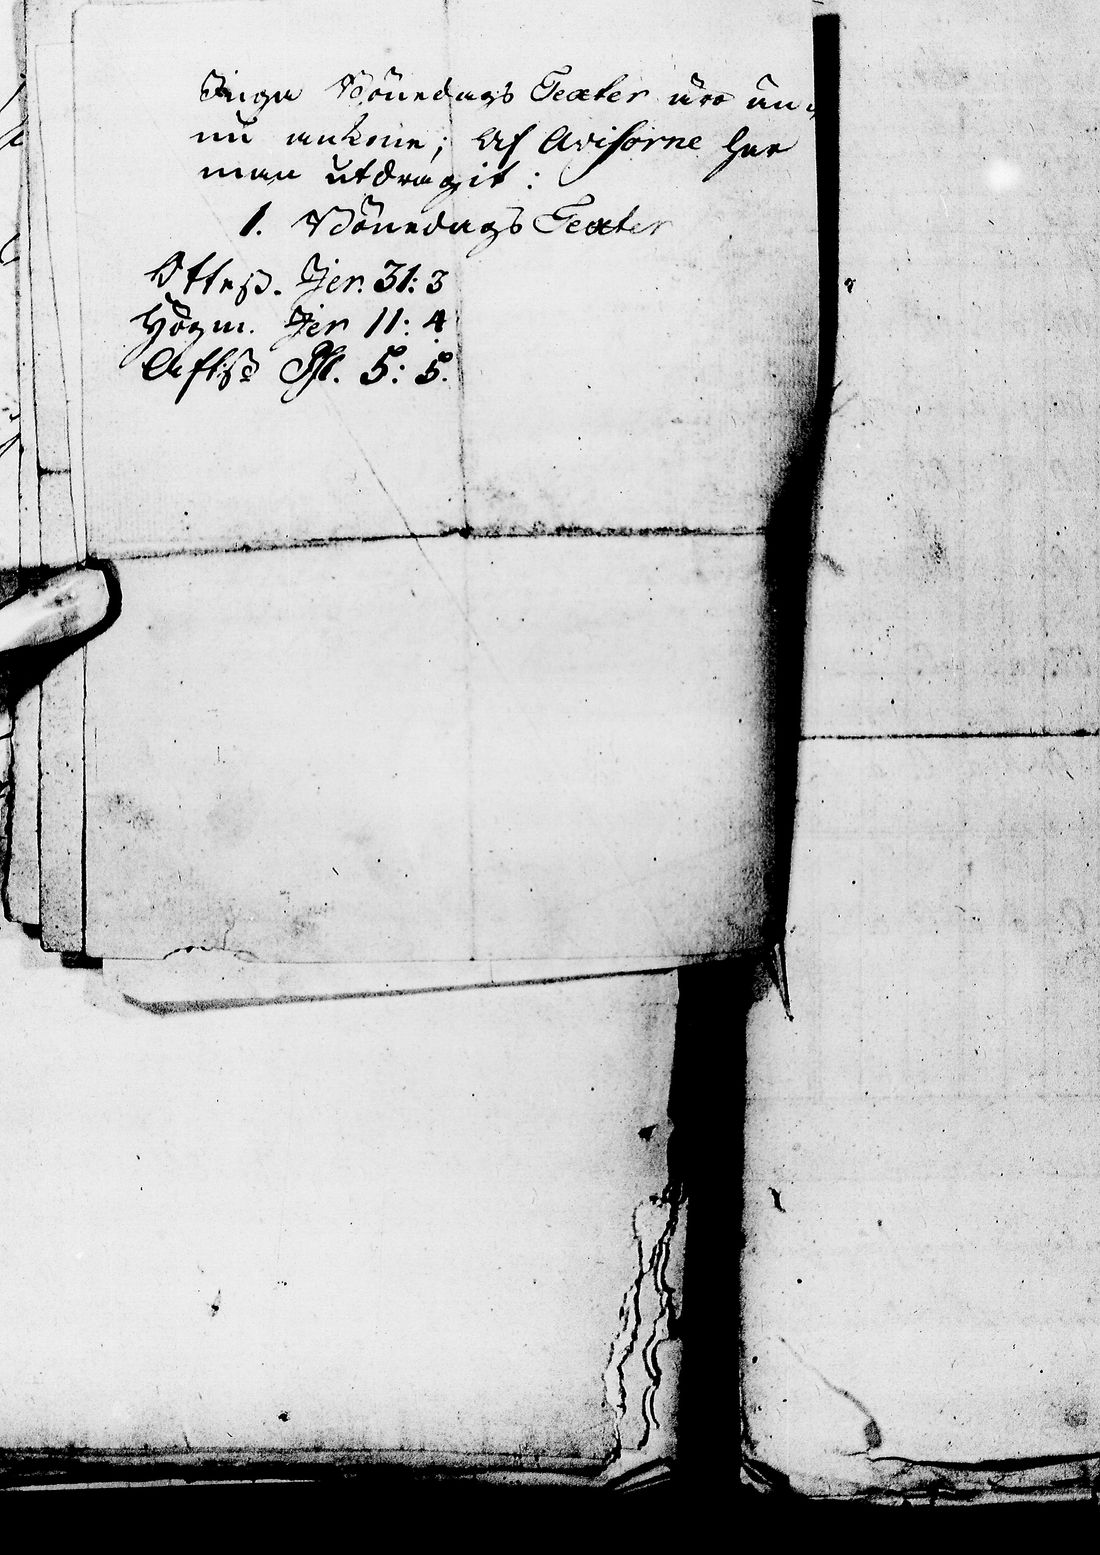 Inga Bönedags Texter äro än-
nu ankne; Af Avisorne har
man utdragit:
1. Bönedags Texter
Otteß. Jer. 31: 3
Högm. Jer 11: 4
Aftß Ps. 5: 5.